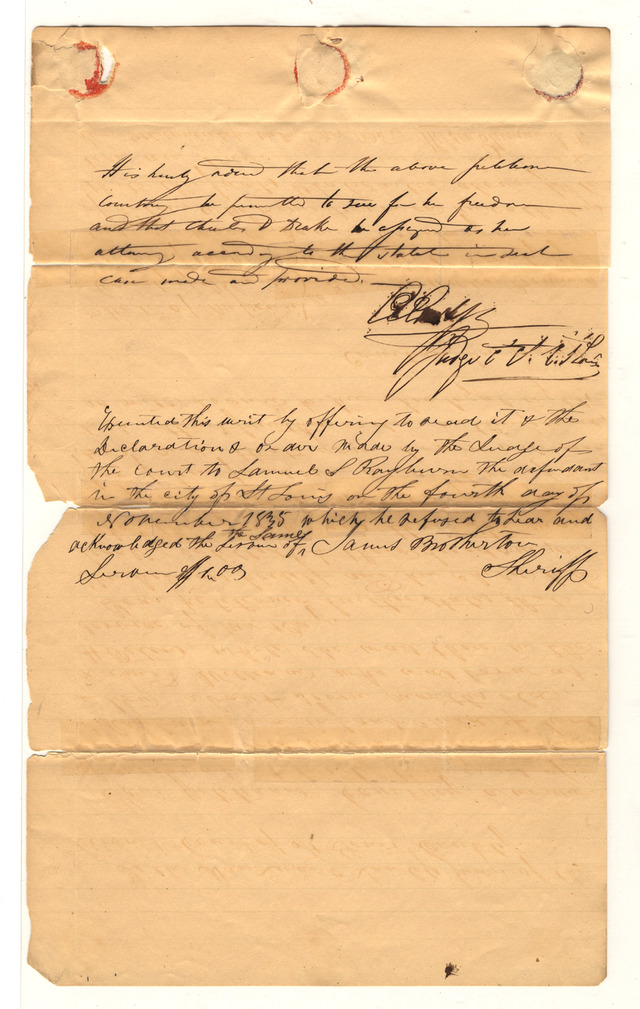 It is hereby ordered that the above petitioner
Courtney be permitted to sue for her freedom
and that Charles D Drake be assigned as her
attorney according to the statute in such
case made and provided.
Judge C. C. St Louis
Executed this writ by offering to read it & the
Declaration & order made by the Judge of
the court to Samuel S Rayburn the defendant
in the city of St Louis on the fourth day of
November 1835 which he refused to hear and
acknowledged the service of the same James Brotherton
Service $1.00 Sheriff